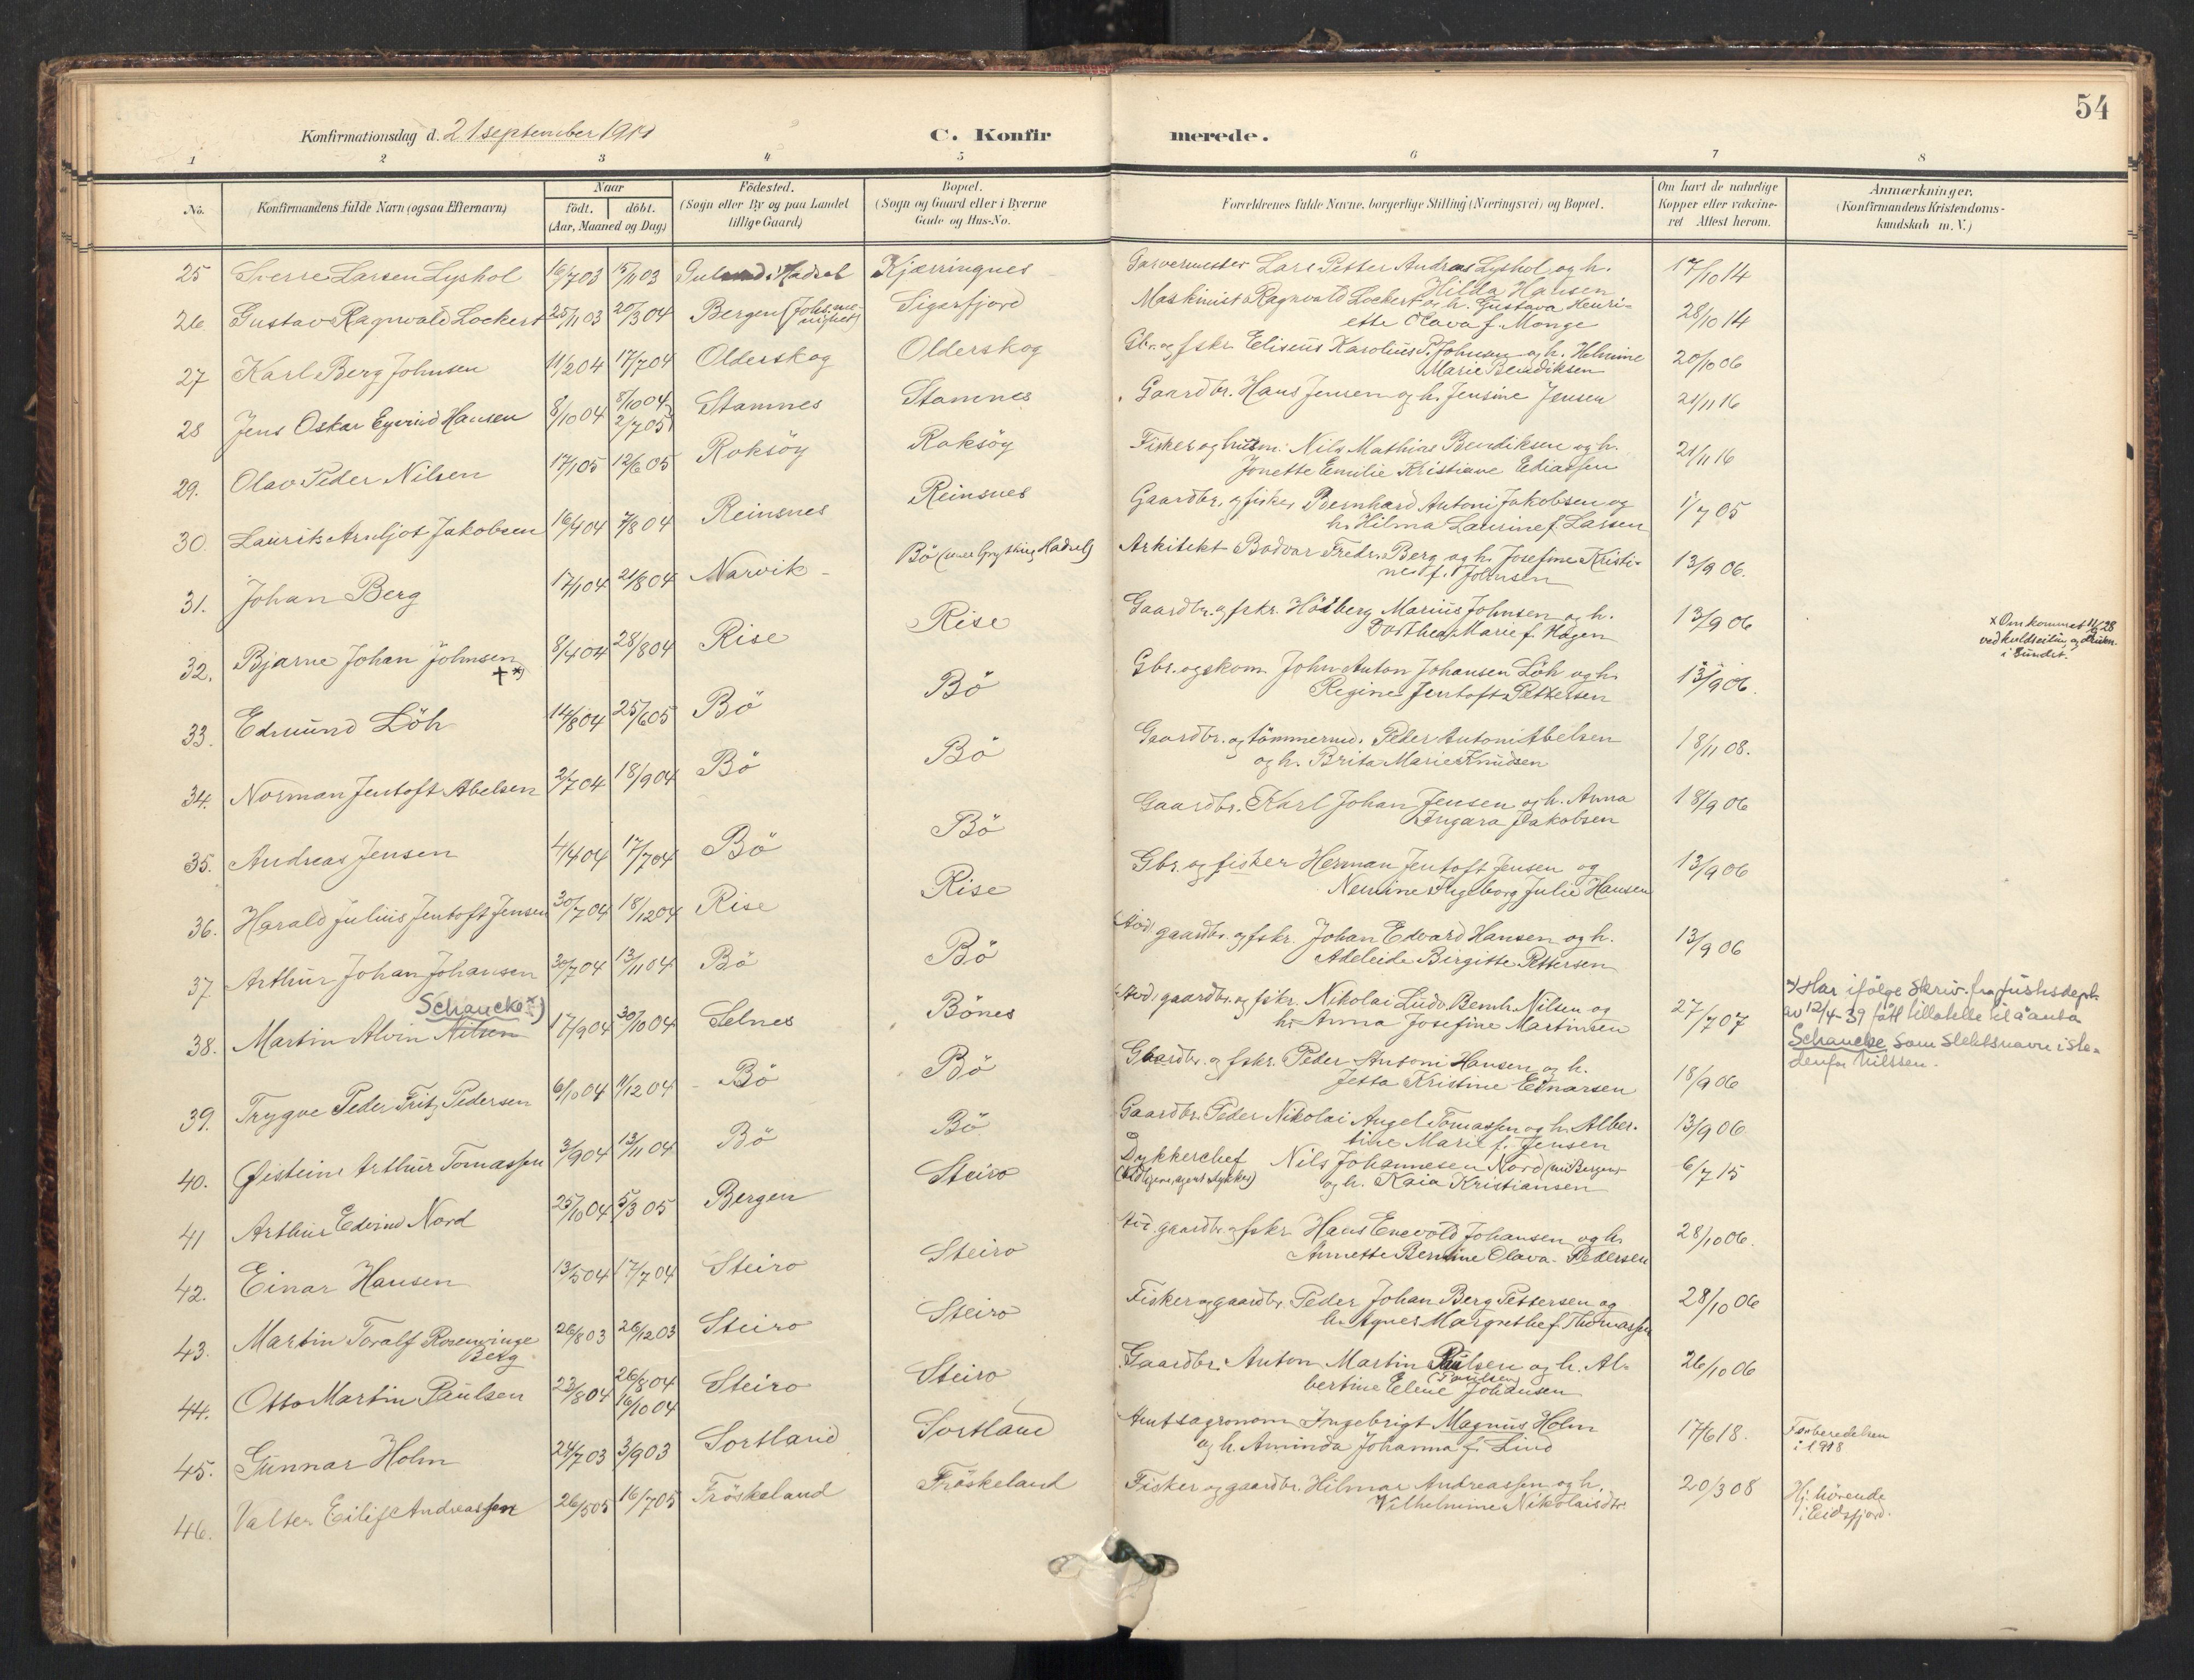 54
Konfirmationsdag d. 21 september 19
C. Konfirmerede.
1 2 3 4 5 6 7 8
No.
Konfirmandens fulde Navn (ogsaa Efternavn)
Naar
födt. döbt.
(Aar, Maaned og Dag)
Födested.
(Sogn eller By og paa Landet
tillige Gaard)
Bopæl.
(Sogn og Gaard eller i Byerne
Gade og Hus-No.
Forældrenes fulde Navne, borgerlige Stilling (Næringsvei) og Bopæl.
Om havt de naturlige
Kopper eller vakcine-
ret Attest herom.
Anmærkninger,
(Konfirmandens Kristendoms-
kundskab m.V.)
25 Sverre Larsen Lyshol 16/7 03 15/11 03 Hadsel Kjærringnes Garvermester Lars Petter Andreas Lyshol og h. 17/10 14
Hilda Hansen
26 Gustav Ragnvald Lockert 25/11 03 20/3 04 Bergen (Johs.me-
nighet) Sigerfjord Maskinist Ragnvald Lockert og h. Gustava Henri- 28/10 14
ette Olava f. Monge
27 Karl Berg Johnsen 11/2 04 17/7 04 Olderskog Olderskog Gbr. og fskr. Eliseus Karolius P. Johnsen og h. Helmine 20/10 06
Marie Bendiksen
28 Jens Oskar Eyvind Hansen 8/10 04 8/10 04
2/7 05 Stamnes Stamnes Gaardbr. Hans Jensen og h. Jensine Jensen 21/11 16
29. Olav Peder Nilsen 17/1 05 12/6 05 Roksöy Roksöy Fisker og husm. Nils Mathias Bendiksen og h. 21/11 16
Jonette Emilie Kristiane Ediassen
30. Laurits Arnljot Jakobsen 16/4 04 7/8 04 Reinsnes Reinsnes Gaardbr. og fisker Bernhard Antoni Jakobsen og 1/7 05
h. Hilma Laurine f. Larsen
31. Johan Berg 17/1 04 21/8 04 Narvik Bö ( Hadsel) Arkitekt Bodvar Fredr. Berg og h. Josefine Kristi- 13/9 06.
ne f. Johnsen
32. Bjarne Johan Johnsen 8/4 04 28/8 04 Rise Rise Gaardbr. og fskr. Hödberg Marius Johnsen og h. 13/9 06
✝ x)
Dorthea Marie f. Hagen
x Omkommet 11/2 28
ved kuldseiling
i Sundet.
33. Edmund Löh 14/8 04 25/6 05 Bö Bö Gbr. og skom. John Anton Johansen Löh og h. 13/9 06.
Regine Jentoft Pettersen
34. Norman Jentoft Abelsen 2/7 04 18/9 04 Bö Bö Gaardbr. og tömmermd. Peder Antoni Abelsen 18/11 08.
og h. Brita Marie Knudsen
35. Andreas Jensen 4/4 04 17/7 04 Bö Bö Gaardbr. Karl Johan Jensen og h. Anna 18/9 06
Ingara Jakobsen
36. Harald Julius Jentoft Jensen 30/7 04 18/12 04 Rise Rise Gbr. og fisker Herman Jentoft Jensen og 13/9 06
Nemine Ingeborg Julie Hansen
37. Arthur Johan Johansen 30/7 04 13/11 04 Bö Bö gaardbr. og fskr. Johan Edvard Hansen og h. 13/9 06
Adeleide Birgitte Pettersen
Schancke x)
38. Martin Alvin Nilsen 17/9 04 30/10 04 Selnes Bönes gaardbr. og fskr. Nikolai Ludv. Bernh. Nilsen og 27/7 07
h. Anna Josefine Martinsen
x) Har ifölge skriv. fra Justisdept.
av 12/4-39 fått tillatelse til å anta
Schancke som slektsnavn iste-
denfor Nilssen.
39. Trygve Peder Fritz Pedersen 6/10 04 11/12 04 Bö Bö Gaardbr. og fskr. Peder Antoni Hansen og h. 18/9 06
Jetta Kristine Einarsen
40. Øistein Arthur Tomassen 3/9 04 13/11 04 Bö Bö Gaardbr. Peder Nikolai Angel Tomassen og h. Alber- 13/9 06
tine Marie f. Jensen
41 Arthur Edvind Nord 25/10 04 5/3 05 Bergen Steiro Dykkerchef Nils Johannesen Nord (nu Bergen) 6/7 15
og h. Kaia Kristiansen
42. Einar Hansen 13/5 04 17/7 04 Steiro Steiro gaardbr. og fskr. Hans Enevold Johansen og h. 28/10 06.
Annette Bernine Olava Pedersen
43. Martin Toralf Rosenvinge
Berg 26/8 03 26/12 03 Steiro Steiro Fisker og gaardbr. Peder Johan Berg Pettersen og 28/10 06
h. Agnes Margrethe f. Thomassen
44. Otto Martin Paulsen 23/8 04 26/8 04
16/10 04 Steiro Steiro Gaardbr. Anton Martin Paulsen og h. Al- 26/10 06
(Paulsen)
bertine Elene Johansen
45. Gunnar Holm 24/7 03 3/9 03 Sortland Sortland Amtsagronom Ingebrigt Magnus Holm 17/6 18.
og h. Aminda Johanna f. Lind
Forberedelsen
i 1918
46. Valter Eilif Andreassen 26/5 05 16/7 05 Fröskeland Fröskeland Fisker og gaardbr. Hilmar Andreassen og h. 20/3 08
Vilhelmine Nikolaisdtr.
Hj. hörende
i Eidsfjord.